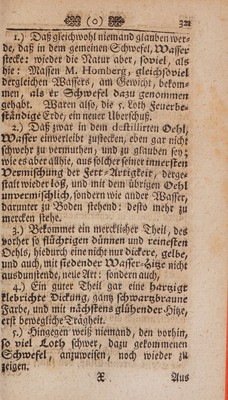 (o) 321
1.) Daß gleichwohl niemand glauben wer-
de, daß in dem gemeinen Schwefel, Wasser
stecke: wieder die Natur aber, soviel, als
die: Massen M. Homberg, gleichsoviel
dergleichen Wassers, am Gewicht, bekom-
men, als er Schwefel dazu genommen
gehabt. Waren also, die 5. Loth Feuerbe-
ständige Erde, ein neuer Uberschuß.
2.) Daß zwar in dem destillirten Oehl,
Wasser einverleibt zustecken, eben gar nicht
schwehr zu vermuthen, und zu glauben sey;
wie es aber allhie, aus solcher seiner innersten
Vermischung der Fett-Artigkeit, derge-
stalt wieder loß, und mit dem übrigen Oehl
unvermischlich, sondern wie ander Wasser,
darunter zu Boden stehend: desto mehr zu
mercken stehe.
3.) Bekommet ein mercklicher Theil, des
vorher so flüchtigen dünnen und reinesten
Oehls, hiedurch eine nicht nur dickere, gelbe,
und auch, mit siedender Wasser-Hitze nicht
ausdunstende, neue Art: sondern auch,
4.) Ein guter Theil gar eine hartzigt
klebrichte Dickung, gantz schwartzbraune
Farbe, und mit nächstens glühender-Hitze,
erst bewegliche Trägheit.
5.) Hingegen weiß niemand, den vorhin,
so viel Loth schwer, dazu gekommenen
Schwefel, anzuweisen, noch wieder zu
zeigen.
X Aus